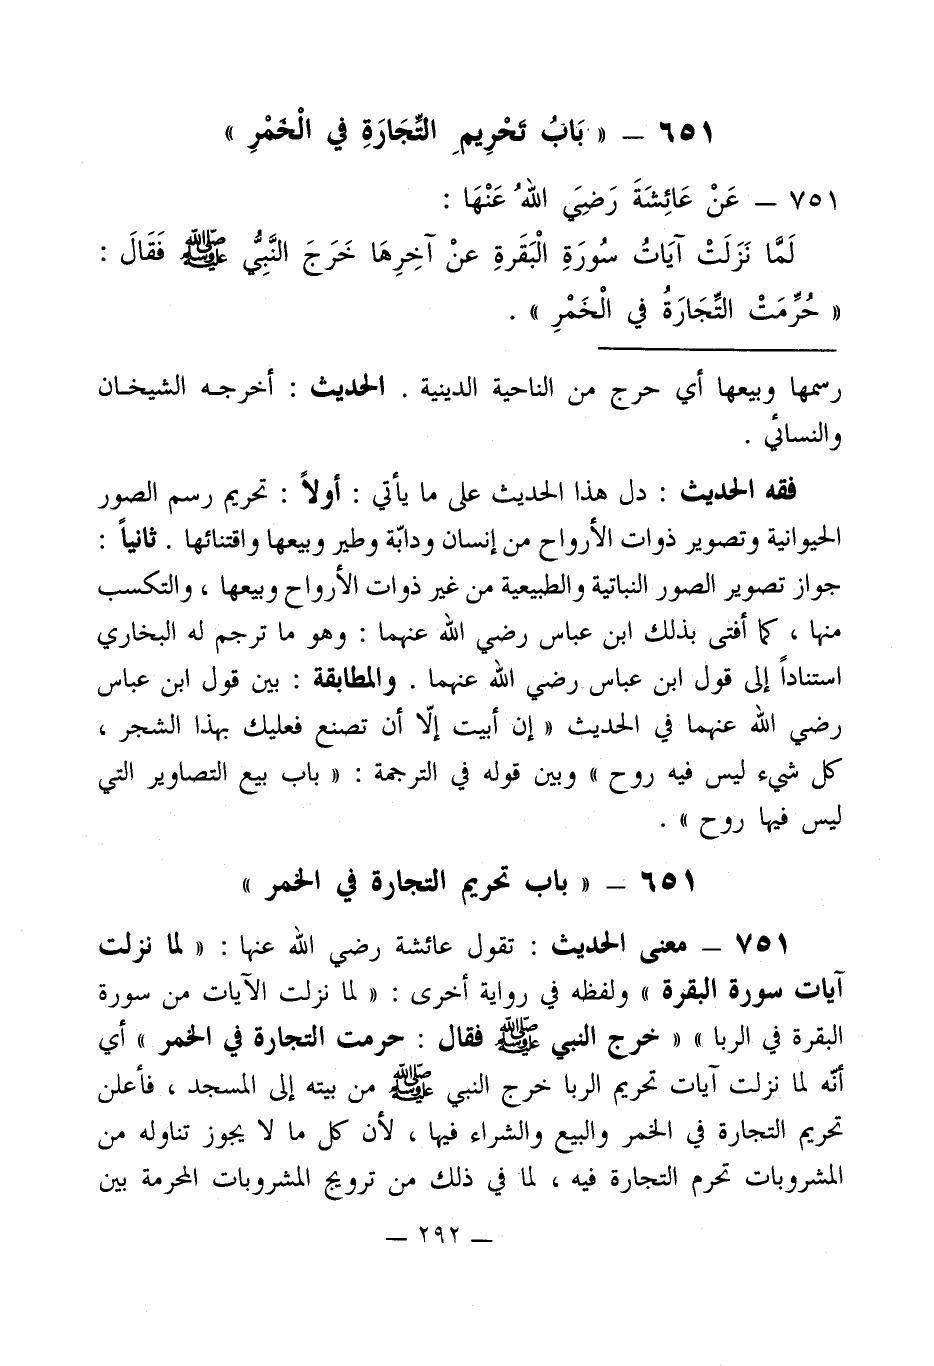 ٦٥١ – « بَابُ تَحْرِيمِ التِّجَارَةِ فِي الْخَمْرِ »
٧٥١ – عَنْ عَائِشَةَ رَضِيَ اللهُ عَنْهَا :
لَمَّا نَزَلَتْ آيَاتُ سُورَةِ الْبَقَرةِ عنْ آخِرِهَا خَرَجَ النَّبِيُّ ﷺ فَقَالَ :
« حُرِّمَتْ التِّجَارَةُ في الْخَمْرِ » .
رسمها وبيعها أي حرج من الناحية الدينية . الحديث : أخرجـه الشيخـان
والنسائي .
فقه الحديث : دل هذا الحديث على ما يأتي : أولاً : تحريم رسم الصور
الحيوانية وتصوير ذوات الأرواح من إنسان ودابّة وطير وبيعها واقتنائها . ثانياً :
جواز تصوير الصور النباتية والطبيعية من غير ذوات الأرواح وبيعها ، والتكسب
منها ، كما أفتى بذلك ابن عباس رضي الله عنهما : وهو ما ترجم له البخاري
استناداً إلى قول ابن عباس رضي الله عنهما . والمطابقة : بين قول ابن عباس
رضي الله عنهما في الحديث « إن أبيت إلّا أن تصنع فعليك بهذا الشجر ،
كل شيء ليس فيه روح » وبين قوله في الترجمة : « باب بيع التصاوير التي
ليس فيها روح » .
٦٥١ – « باب تحريم التجارة في الخمر »
٧٥١ – معنى الحديث : تقول عائشة رضي الله عنها : « لما نزلت
آيات سورة البقرة » ولفظه في رواية أخرى : « لما نزلت الآيات من سورة
البقرة في الربا » « خرج النبي ﷺ فقال : حرمت التجارة في الخمر » أي
أنّه لما نزلت آيات تحريم الربا خرج النبي ﷺ من بيته إلى المسجد ، فأعلن
تحريم التجارة في الخمر والبيع والشراء فيها ، لأن كل ما لا يجوز تناوله من
المشروبات تحرم التجارة فيه ، لما في ذلك من ترويج المشروبات المحرمة بين
– ٢٩٢ –